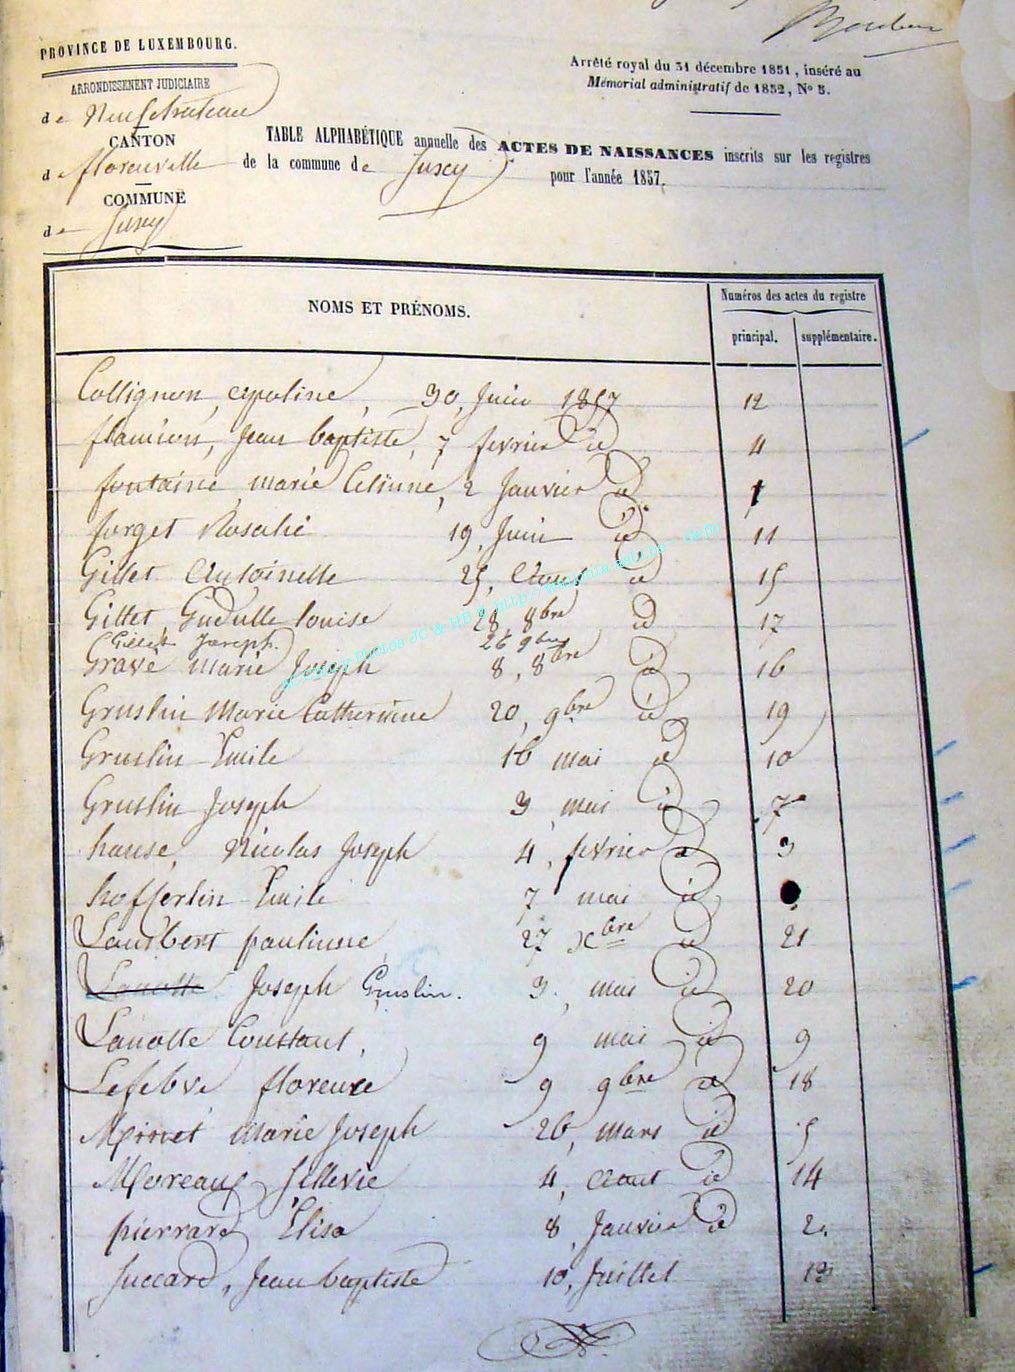 PROVINCE DE LUXEMBOURG.
ARRONDISSEMENT JUDICIAIRE
de Neufchateau
CANTON
de florenville
COMMUNE
de Suxcy
Arrêté royal du 31 décembre 1851, inséré au
Mémorial administratif de 1852, No 5.
TABLE ALPHABÉTIQUE annuelle des ACTES DE NAISSANCES inscrits sur les registres
de la commune de Suxcy pour l'année 1857.
NOMS ET PRÉNOMS.
Numéros des actes du registre
principal. supplémentaire.
Collignon, apoline, 30, Juin 1857 12
flamion, Jean baptiste, 7 fevrier id 4
fontaine, marie Celinne, 2 Janvier id 1
forget Rosalie 19, Juin id 11
Gillet Antoinette 25, Aout id 15
Gillet Gudulle louise 28, 8bre id 17
Gillet Joseph. 26 9bre
Grave marie Joseph 8, 8bre id 16
Gruslin Marie Catherinne 20, 9bre id 19
Gruslin Emile 16 mai id 10
Gruslin Joseph 3, mai id 7
hanse, Nicolas Joseph 4, fevrier id 3
hofferlin Emile 7 mai id
Lambert paulinne 27 xbre id 21
Lanotte Joseph Gruslin. 3, mai id 20
Lanotte Constant, 9 mai id 9
Lefebve florence 9 9bre id 18
Minet marie Joseph 26, mars id 5
Moreaux Sillevie 4, Aout id 14
pierrard Elisa 8, Janvier id 2
Succard, Jean baptiste 10, Juillet 13